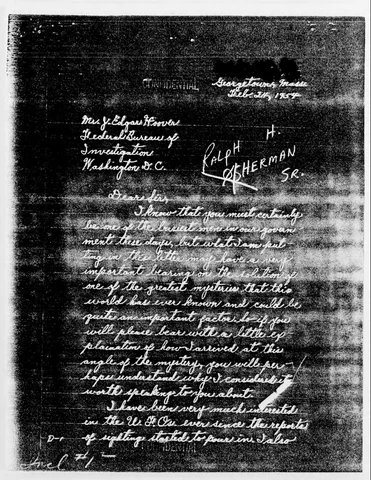 CONFIDENTIAL
Georgetown, Mass
Feb. 24, 1954
Mr. J. Edgar Hoover
Federal Bureau of
Investigation
Washington D.C.
RALPH H.
SHERMAN
SR.
Dear Sir,
I know that you must certainly
be one of the busiest men in our govern
ment these days, but what I am put
ting in this letter may have a very
important bearing on the solution of
one of the greatest mysteries that this
world has ever known and could be
quite an important factor. So if you
will please bear with a little ex
plaination of how I arrived at this
angle of the mystery, you will per-
haps understand why I consider it
worth speaking to you about.
I have been very much interested
in the U.F.O's ever since the reports
of sighting started to pour in. I also
D-1
CONFIDENTIAL
Incl #1